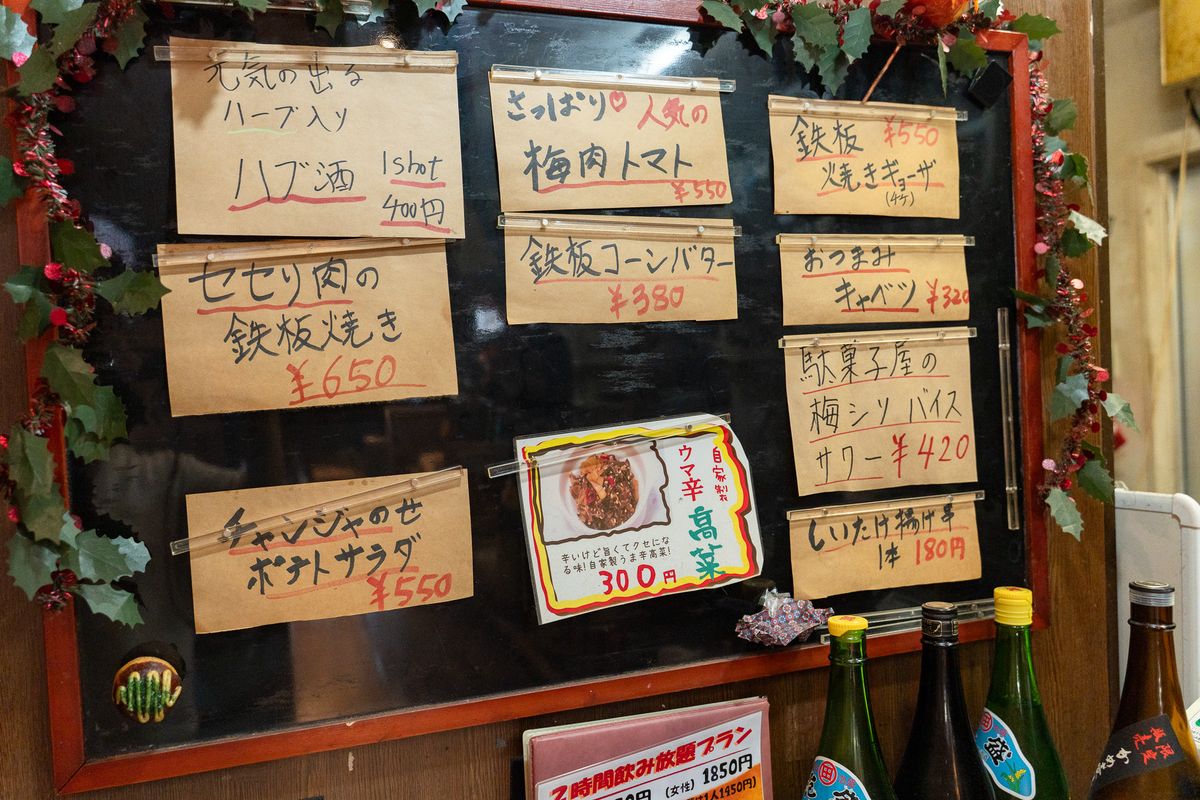 元気の出る
ハーブ入り
ハブ酒 1shot
400円
セセリ肉の
鉄板焼き
¥650
チャンジャのせ
ポテトサラダ
¥550
さっぱり♡人気の
梅肉トマト
¥550
鉄板コーンバター
¥380
自家製
ウマ辛
高菜
辛いけど旨くてクセにな
る味!自家製うま辛高菜!
300円
鉄板 ¥550
焼きギョーザ
(4ケ)
おつまみ
キャベツ ¥320
駄菓子屋の
梅シソ バイス
サワー ¥420
しいたけ揚げ串
1本 180円
2時間飲み放題プラン
(女性) 1850円
1人1950円)
盛
限定